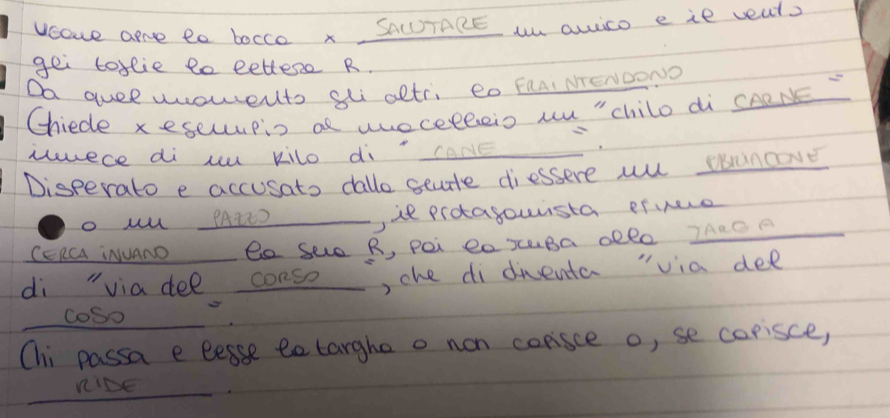 Uscue apre la bocca x SALUTARE un amico e il vento
gli toglie la lettera R.
Da quel momento gli altri lo FRAINTENDONO
Chiede x esempio al macellaio un "chilo di CARNE"
invece di un kilo di "CANE".
Disperato e accusato dalla gente di essere un UBRIACONE
o un PAZZO, il protagonista prima
CERCA INVANO la sua R, poi la ruba alla TARGA
di "via del CORSO", che di diventa "via del
COSO".
Chi passa e legge la targha o non capisce o, se capisce,
RIDE.